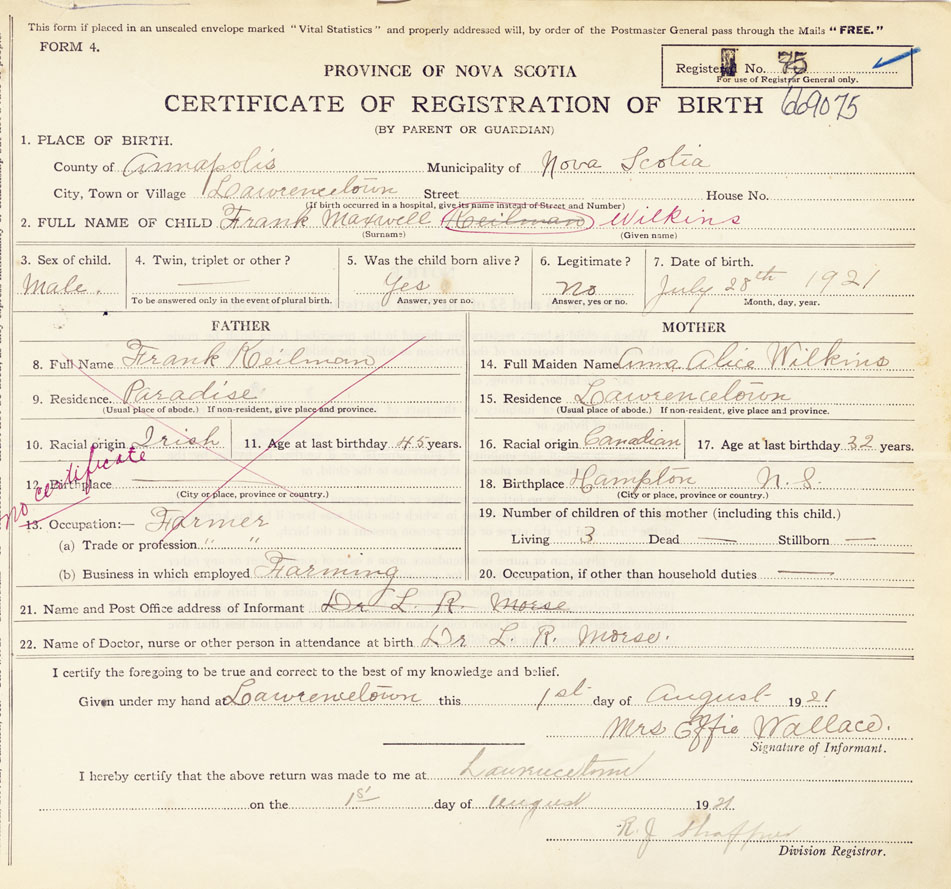 This form if placed in an unsealed envelope marked "Vital Statistics" and properly addressed will, by order of the Postmaster General pass through the Mails "FREE."
FORM 4.
Registered No. 75
For use of Registrar General only.
PROVINCE OF NOVA SCOTIA
CERTIFICATE OF REGISTRATION OF BIRTH 669075
(BY PARENT OR GUARDIAN)
1. PLACE OF BIRTH.
County of Annapolis Municipality of Nova Scotia
City, Town or Village Lawrencetown Street House No.
(If birth occurred in a hospital, give its name instead of Street and Number)
2. FULL NAME OF CHILD Frank Maxwell Keilman Wilkins
(Surname) (Given name)
3. Sex of child. 4. Twin, triplet or other? 5. Was the child born alive? 6. Legitimate? 7. Date of birth.
Male. — Yes No July 28th 1921
To be answered only in the event of plural birth. Answer, yes or no. Answer, yes or no. Month, day, year.
FATHER
8. Full Name Frank Keilman
9. Residence. Paradise
(Usual place of abode.) If non-resident, give place and province.
10. Racial origin Irish 11. Age at last birthday 45 years.
no certificate
12. Birthplace —
(City or place, province or country.)
13. Occupation:— Farmer
(a) Trade or profession " "
(b) Business in which employed Farming
MOTHER
14. Full Maiden Name Anna Alice Wilkins
15. Residence Lawrencetown
(Usual place of abode.) If non-resident, give place and province.
16. Racial origin Canadian 17. Age at last birthday 32 years.
18. Birthplace Hampton N.S.
(City or place, province or country.)
19. Number of children of this mother (including this child.)
Living 3 Dead — Stillborn —
20. Occupation, if other than household duties —
21. Name and Post Office address of Informant Dr L. R. Morse
22. Name of Doctor, nurse or other person in attendance at birth Dr L. R. Morse.
I certify the foregoing to be true and correct to the best of my knowledge and belief.
Given under my hand at Lawrencetown this 1st day of August 1921
Mrs Effie Wallace.
Signature of Informant.
I hereby certify that the above return was made to me at Lawrencetown
on the 1st day of August 1921
R. J. Shaffner
Division Registrar.